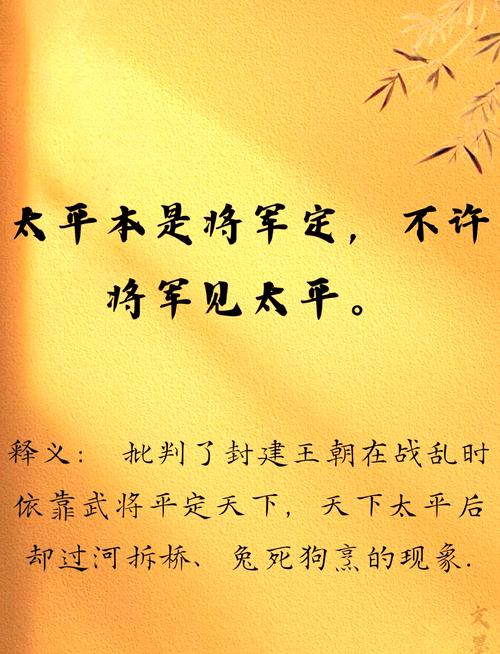 太平本是将军定，不许
将军见太平。
释义： 批判了封建王朝在战乱时
依靠武将平定天下，天下太平后
却过河拆桥、兔死狗烹的现象.
文墨